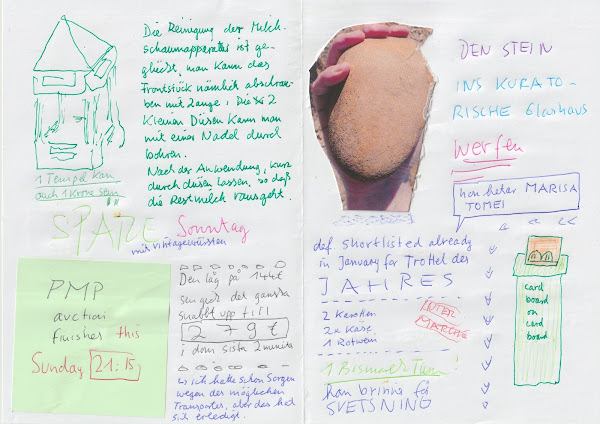 Die Reinigung der Milch-
schaumapparatur ist ge-
glückt, man kann das
Frontstück nämlich abschrau-
ben mit Zange, Die 2
kleinen Düsen kann man
mit einer Nadel durch
bohren.
Nach der Anwendung, kurz
durchdüsen lassen, so daß
die Restmilch rausgeht.
1 Tempel kann
auch 1 Krone sein
SPARE Sonntag
mit vintagewürsten
PMP
auction
finishes this
Sunday 21:15
Den låg på 144€
sen gick det ganska
snabbt upp till
279€
i dom sista 2 minuter
ich hatte schon Sorgen
wegen des möglichen
Transportes, aber das hat
sich erledigt.
DEN STEIN
INS KURATO-
RISCHE Glashaus
werfen
hon heter MARISA
TOMEI
def shortlisted already
in January for Trottel des
JAHRES
2 Karotten
2x Käse
1 Rotwein
INTER
MARCHÉ
1 Bismarck Turm!
han brinna för
SVETSNING
card
board
on
card
board